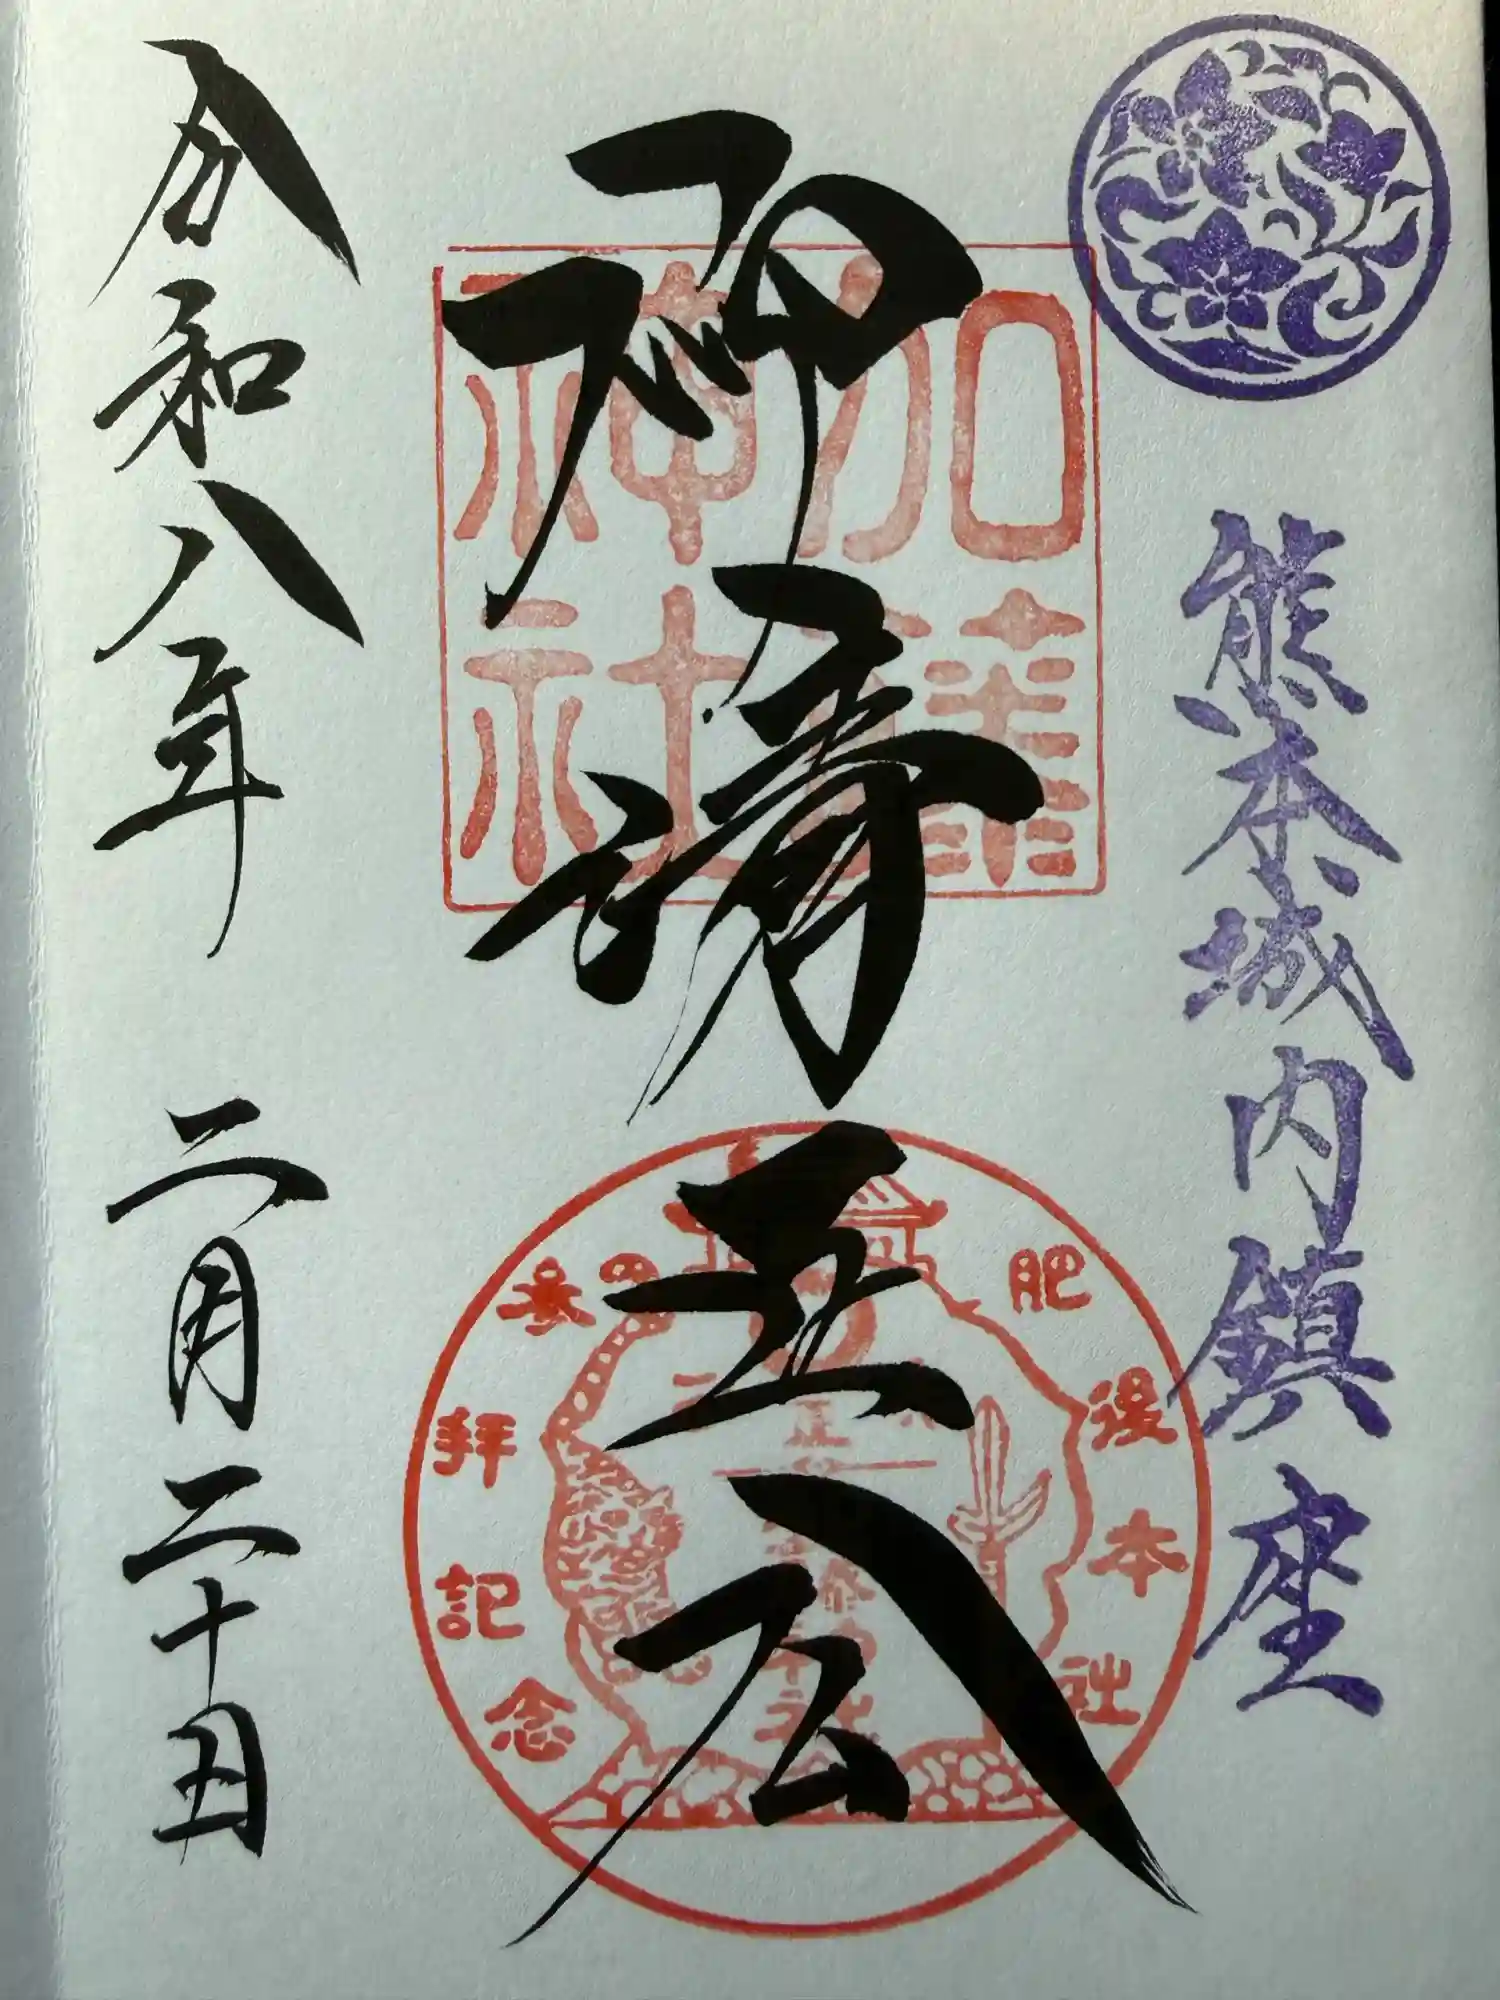 熊本城内鎮座
神清正公
加藤
神社
肥後本社
参拝記念
令和八年 二月二十日